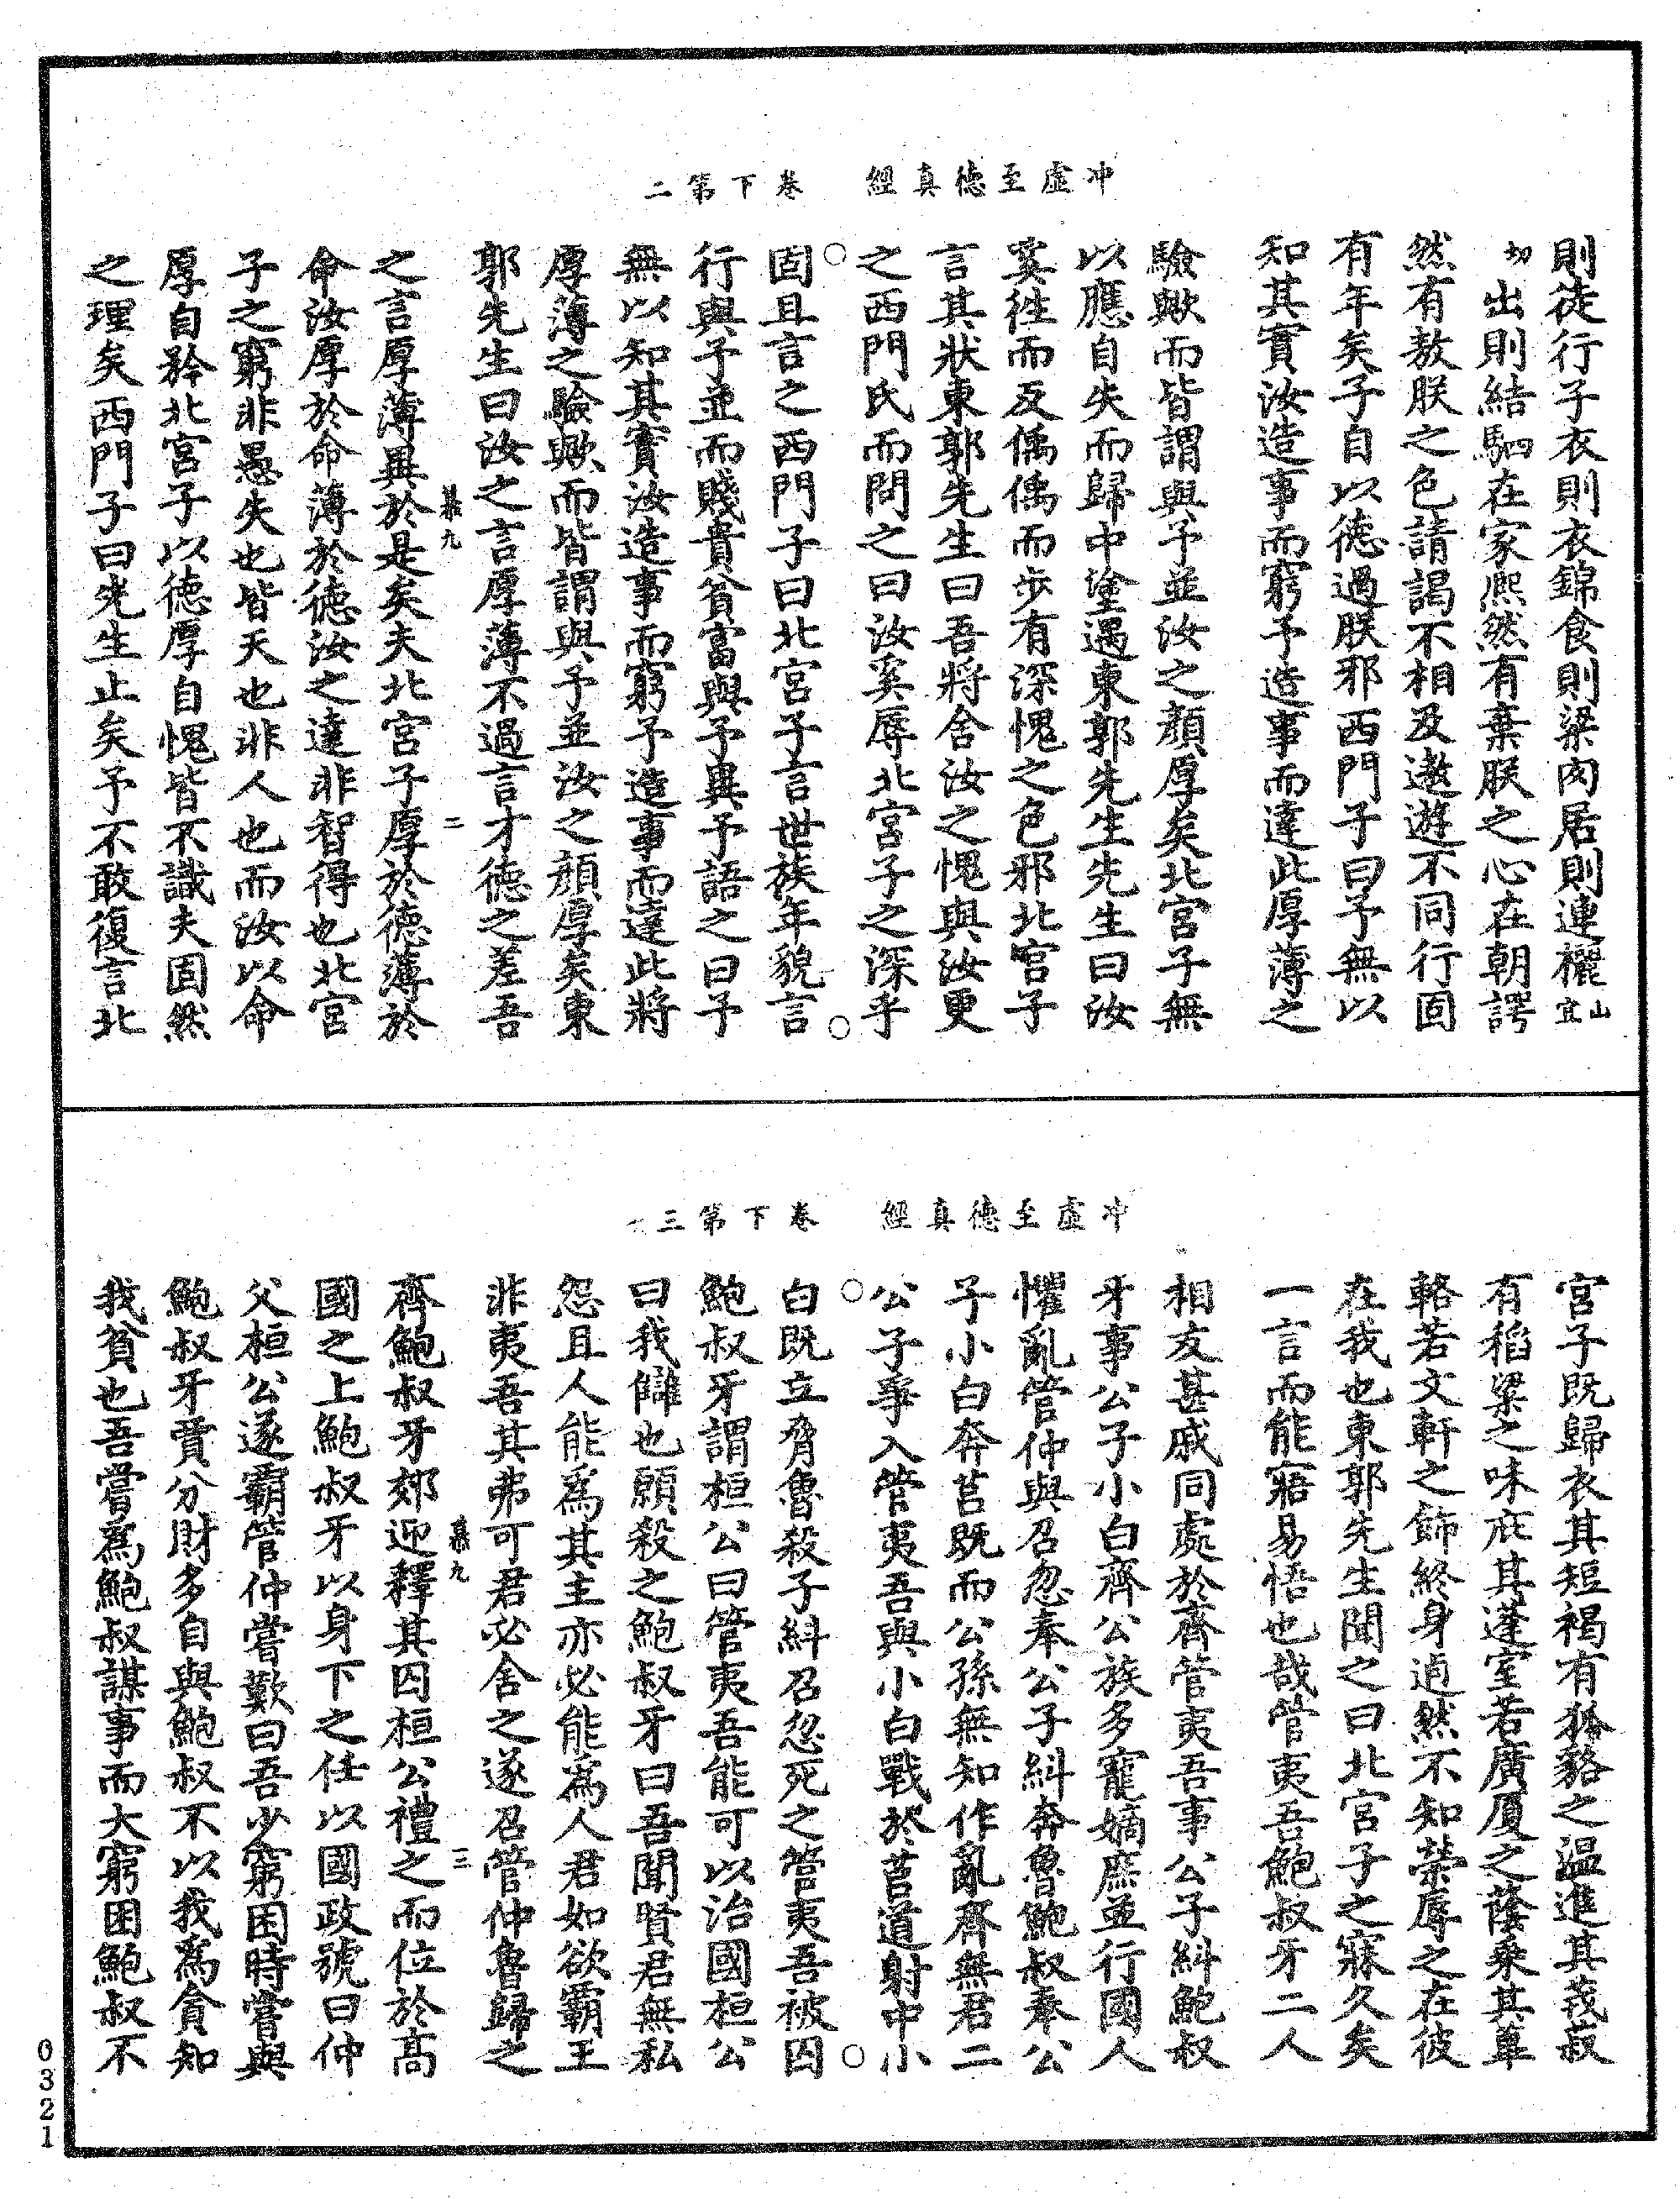 冲虛至德真經　卷下第二
則徒行子衣則衣錦食則粱肉居則連欐山宜
切出則結駟在家熈然有棄朕之心在朝諤
然有敖朕之色請謁不相及遨遊不同行固
有年矣子自以德過朕邪西門子曰予無以
知其實汝造事而窮予造事而達此厚薄之
驗歟而皆謂與予並汝之顔厚矣北宮子無
以應自失而歸中塗遇東郭先生先生曰汝
奚徃而反偊偊而步有深愧之色邪北宮子
言其狀東郭先生曰吾將舍汝之愧與汝更
之西門氏而問之曰汝奚辱北宮子之深乎
固且言之西門子曰北宮子言世族年貌言
行與予並而賤貴貧富與予異予語之曰予
無以知其實汝造事而窮予造事而達此將
厚薄之驗歟而皆謂與予並汝之顔厚矣東
郭先生曰汝之言厚薄不過言才德之差吾
之言厚薄異於是矣夫北宮子厚於德薄於
命汝厚於命薄於德汝之達非智得也北宮
子之窮非愚失也皆天也非人也而汝以命
厚自矜北宮子以德厚自愧皆不識夫固然
之理矣西門子曰先生止矣予不敢復言北
慕九
二
冲虛至德真經　卷下第三
宮子既歸衣其短褐有狐貉之温進其茙菽
有稻粱之味庇其蓬室若廣厦之蔭乘其蓽
輅若文軒之飾終身逌然不知榮辱之在彼
在我也東郭先生聞之曰北宮子之寐久矣
一言而能寤易悟也哉管夷吾鮑叔牙二人
相友甚戚同處於齊管夷吾事公子糾鮑叔
牙事公子小白齊公族多寵嫡庶並行國人
懼亂管仲與召忽奉公子糾奔魯鮑叔奉公
子小白奔莒既而公孫無知作亂齊無君二
公子爭入管夷吾與小白戰於莒道射中小
白既立脅魯殺子糾召忽死之管夷吾被囚
鮑叔牙謂桓公曰管夷吾能可以治國桓公
曰我讎也願殺之鮑叔牙曰吾聞賢君無私
怨且人能爲其主亦必能爲人君如欲霸王
非夷吾其弗可君必舍之遂召管仲魯歸之
齊鮑叔牙郊迎釋其囚桓公禮之而位於高
國之上鮑叔牙以身下之任以國政號曰仲
父桓公遂霸管仲嘗歎曰吾少窮困時嘗與
鮑叔牙賈分財多自與鮑叔不以我爲貪知
我貧也吾嘗爲鮑叔謀事而大窮困鮑叔不
慕九
三
0321